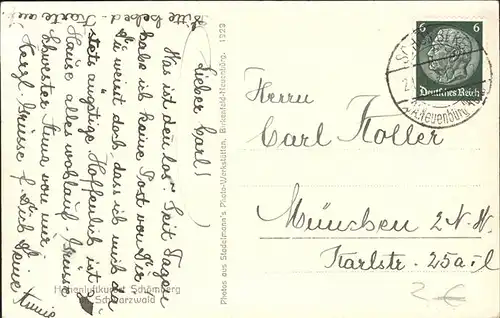 Bitte sobald
Karte an
Lieber Carl!
Was ist denn los? Seit Tagen
habe ich keine Post von Dir
Du weist doch, dass ich mich da
stets ängstige Hoffentlich ist zu
Hause alles wohlauf. Grüsse
Schwester Anna von mir
Herzl. Grüsse f. Dich
Deine
Höhenluftkurort Schömberg
Schwarzwald
Photos aus Stadelmann's Photo-Werkstätten, Birkenfeld-Neuenbürg. 1929
6 6
Deutsches Reich
Neuenbürg
Herrn
Carl Koller
München 2 N.W.
Karlstr. 25a-I
2€